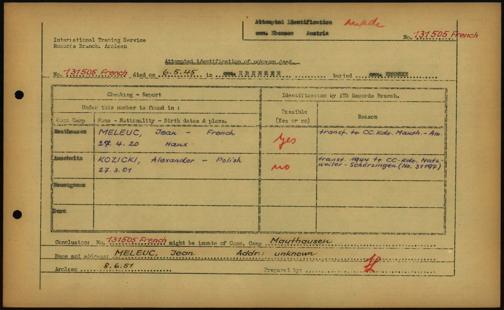 Attempted Identification made
com. Ebensee Austria
International Tracing Service
Records Branch, Arolsen
No. 131505 French
Attempted identification of unknown dead.
No. 131505 French died on 6.5.45 in com. EBENSEE buried com. EBENSEE
Checking - Report
Identification by ITS Records Branch.
Under this number is found in :
Possible
(Yes or no)
Reason
Conc Camp Name - Nationality - Birth dates & place.
Mauthausen MELEUC, Jean - French yes transf. to CC-Kdo. Mauth.
27.4.20
Auschwitz KOZICKI, Alexander - Polish no transf. 1944 to CC-Kdo. Natz-
27.3.01 weiler-Schörzingen (No. 31792)
Buchenwald
Conclusion: No. 131505 French might be inmate of Conc. Camp Mauthausen
Name and address: MELEUC, Jean Addr: unknown
Arolsen 8.6.51 Prepared by: